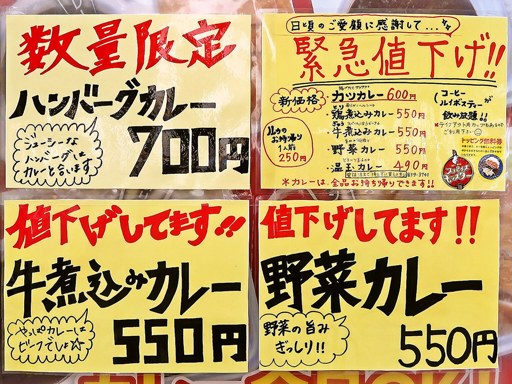 数量限定
ハンバーグカレー
ジューシーな
ハンバーグは
カレーと合います
700円
日頃のご愛顧に感謝して...
緊急値下げ!!
新価格
カツカレー 600円
鶏煮込みカレー 550円
牛煮込みカレー 550円
野菜カレー 550円
温玉カレー 490円
お持ち帰り
1人前
250円
コーヒー
ルイボスティーが
飲み放題!!
※カレーは、全品お持ち帰りできます!!
値下げしてます!!
牛煮込みカレー
やっぱカレーは
ビーフでしょ
550円
値下げしてます!!
野菜カレー
野菜の旨み
ぎっしり!!
550円